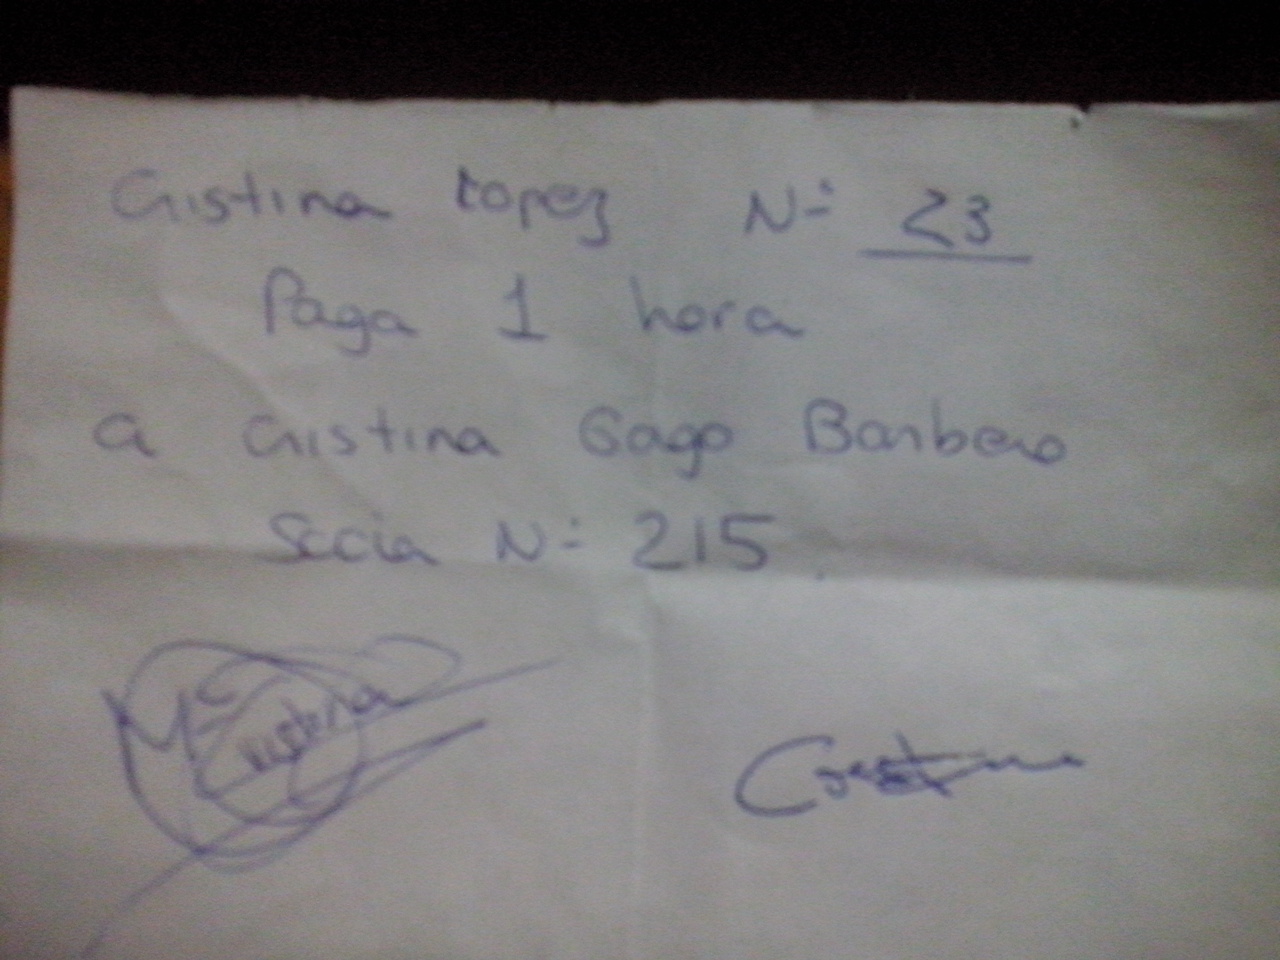 Cristina Lopez Nº 23
Paga 1 hora
a Cristina Gago Barbero
Socia Nº 215
Mª Cristina
Cristina